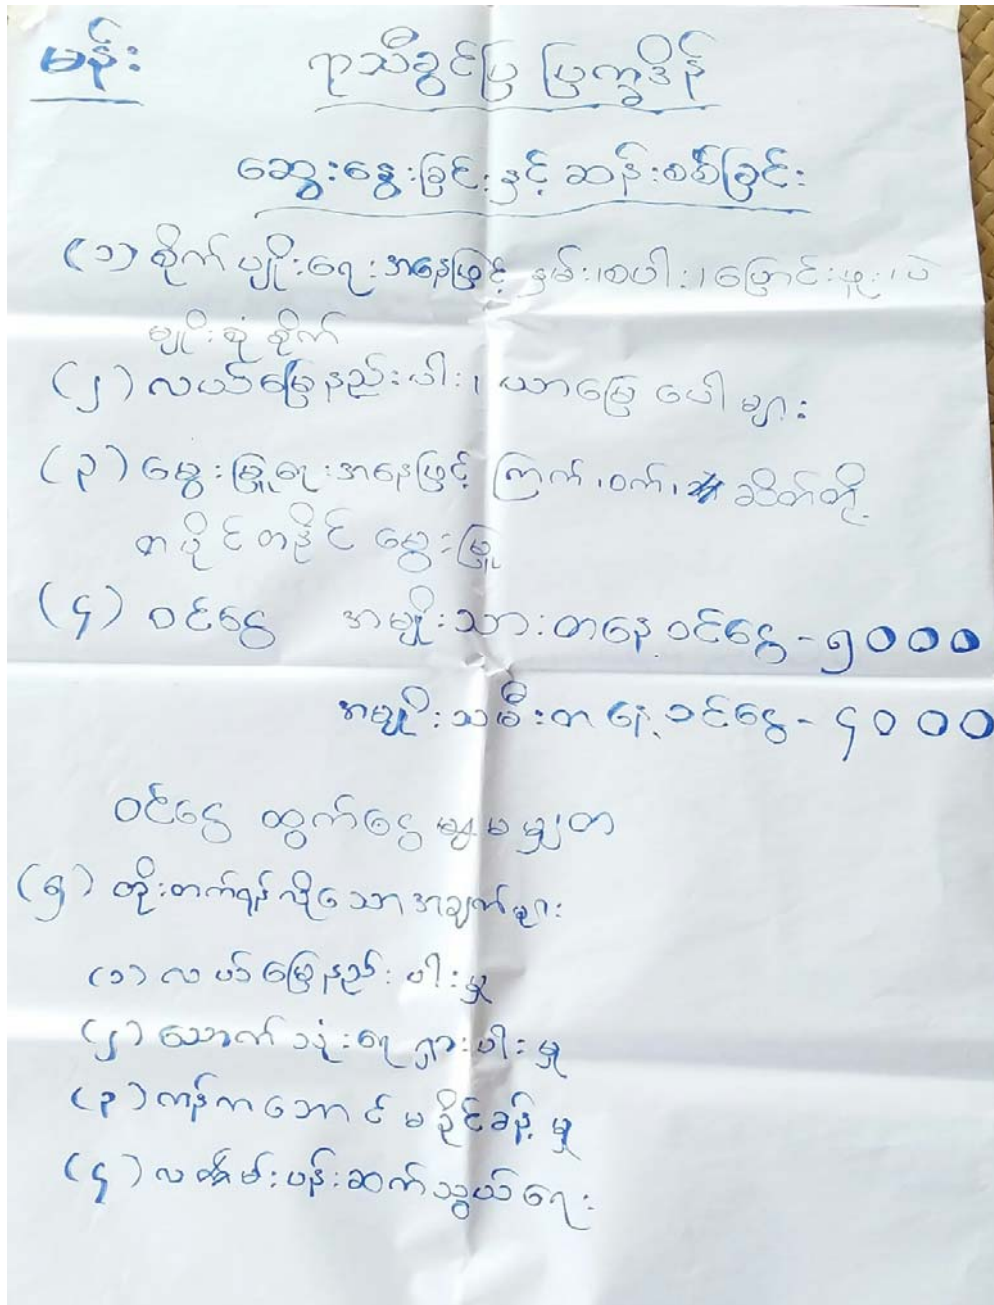 မန်း ရာသီခွင်ပြ ပြက္ခဒိန်
ဆွေးနွေးခြင်းနှင့် ဆန်းစစ်ခြင်း
(၁) စိုက်ပျိုးရေးအနေဖြင့် နှမ်း၊စပါး၊ပြောင်းဖူး၊ပဲ
မျိုးစုံစိုက်
(၂) လယ်မြေနည်းပါး၊ ယာမြေ ပေါများ
(၃) မွေးမြူရေးအနေဖြင့် ကြက်၊ဝက်၊ ဆိတ်တို့
တပိုင်တနိုင် မွေးမြူ
(၄) ဝင်ငွေ အမျိုးသားတနေ့ဝင်ငွေ - ၅၀၀၀
အမျိုးသမီးတနေ့ဝင်ငွေ - ၄၀၀၀
ဝင်ငွေ ထွက်ငွေ မျှမမျှတ
(၅) တိုးတက်ရန်လိုသောအချက်များ
(၁) လယ်မြေနည်းပါးမှု
(၂) သောက်သုံးရေရှားပါးမှု
(၃) ကန်ကဘောင်မခိုင်ခန့်မှု
(၄) လမ်းပန်းဆက်သွယ်ရေး